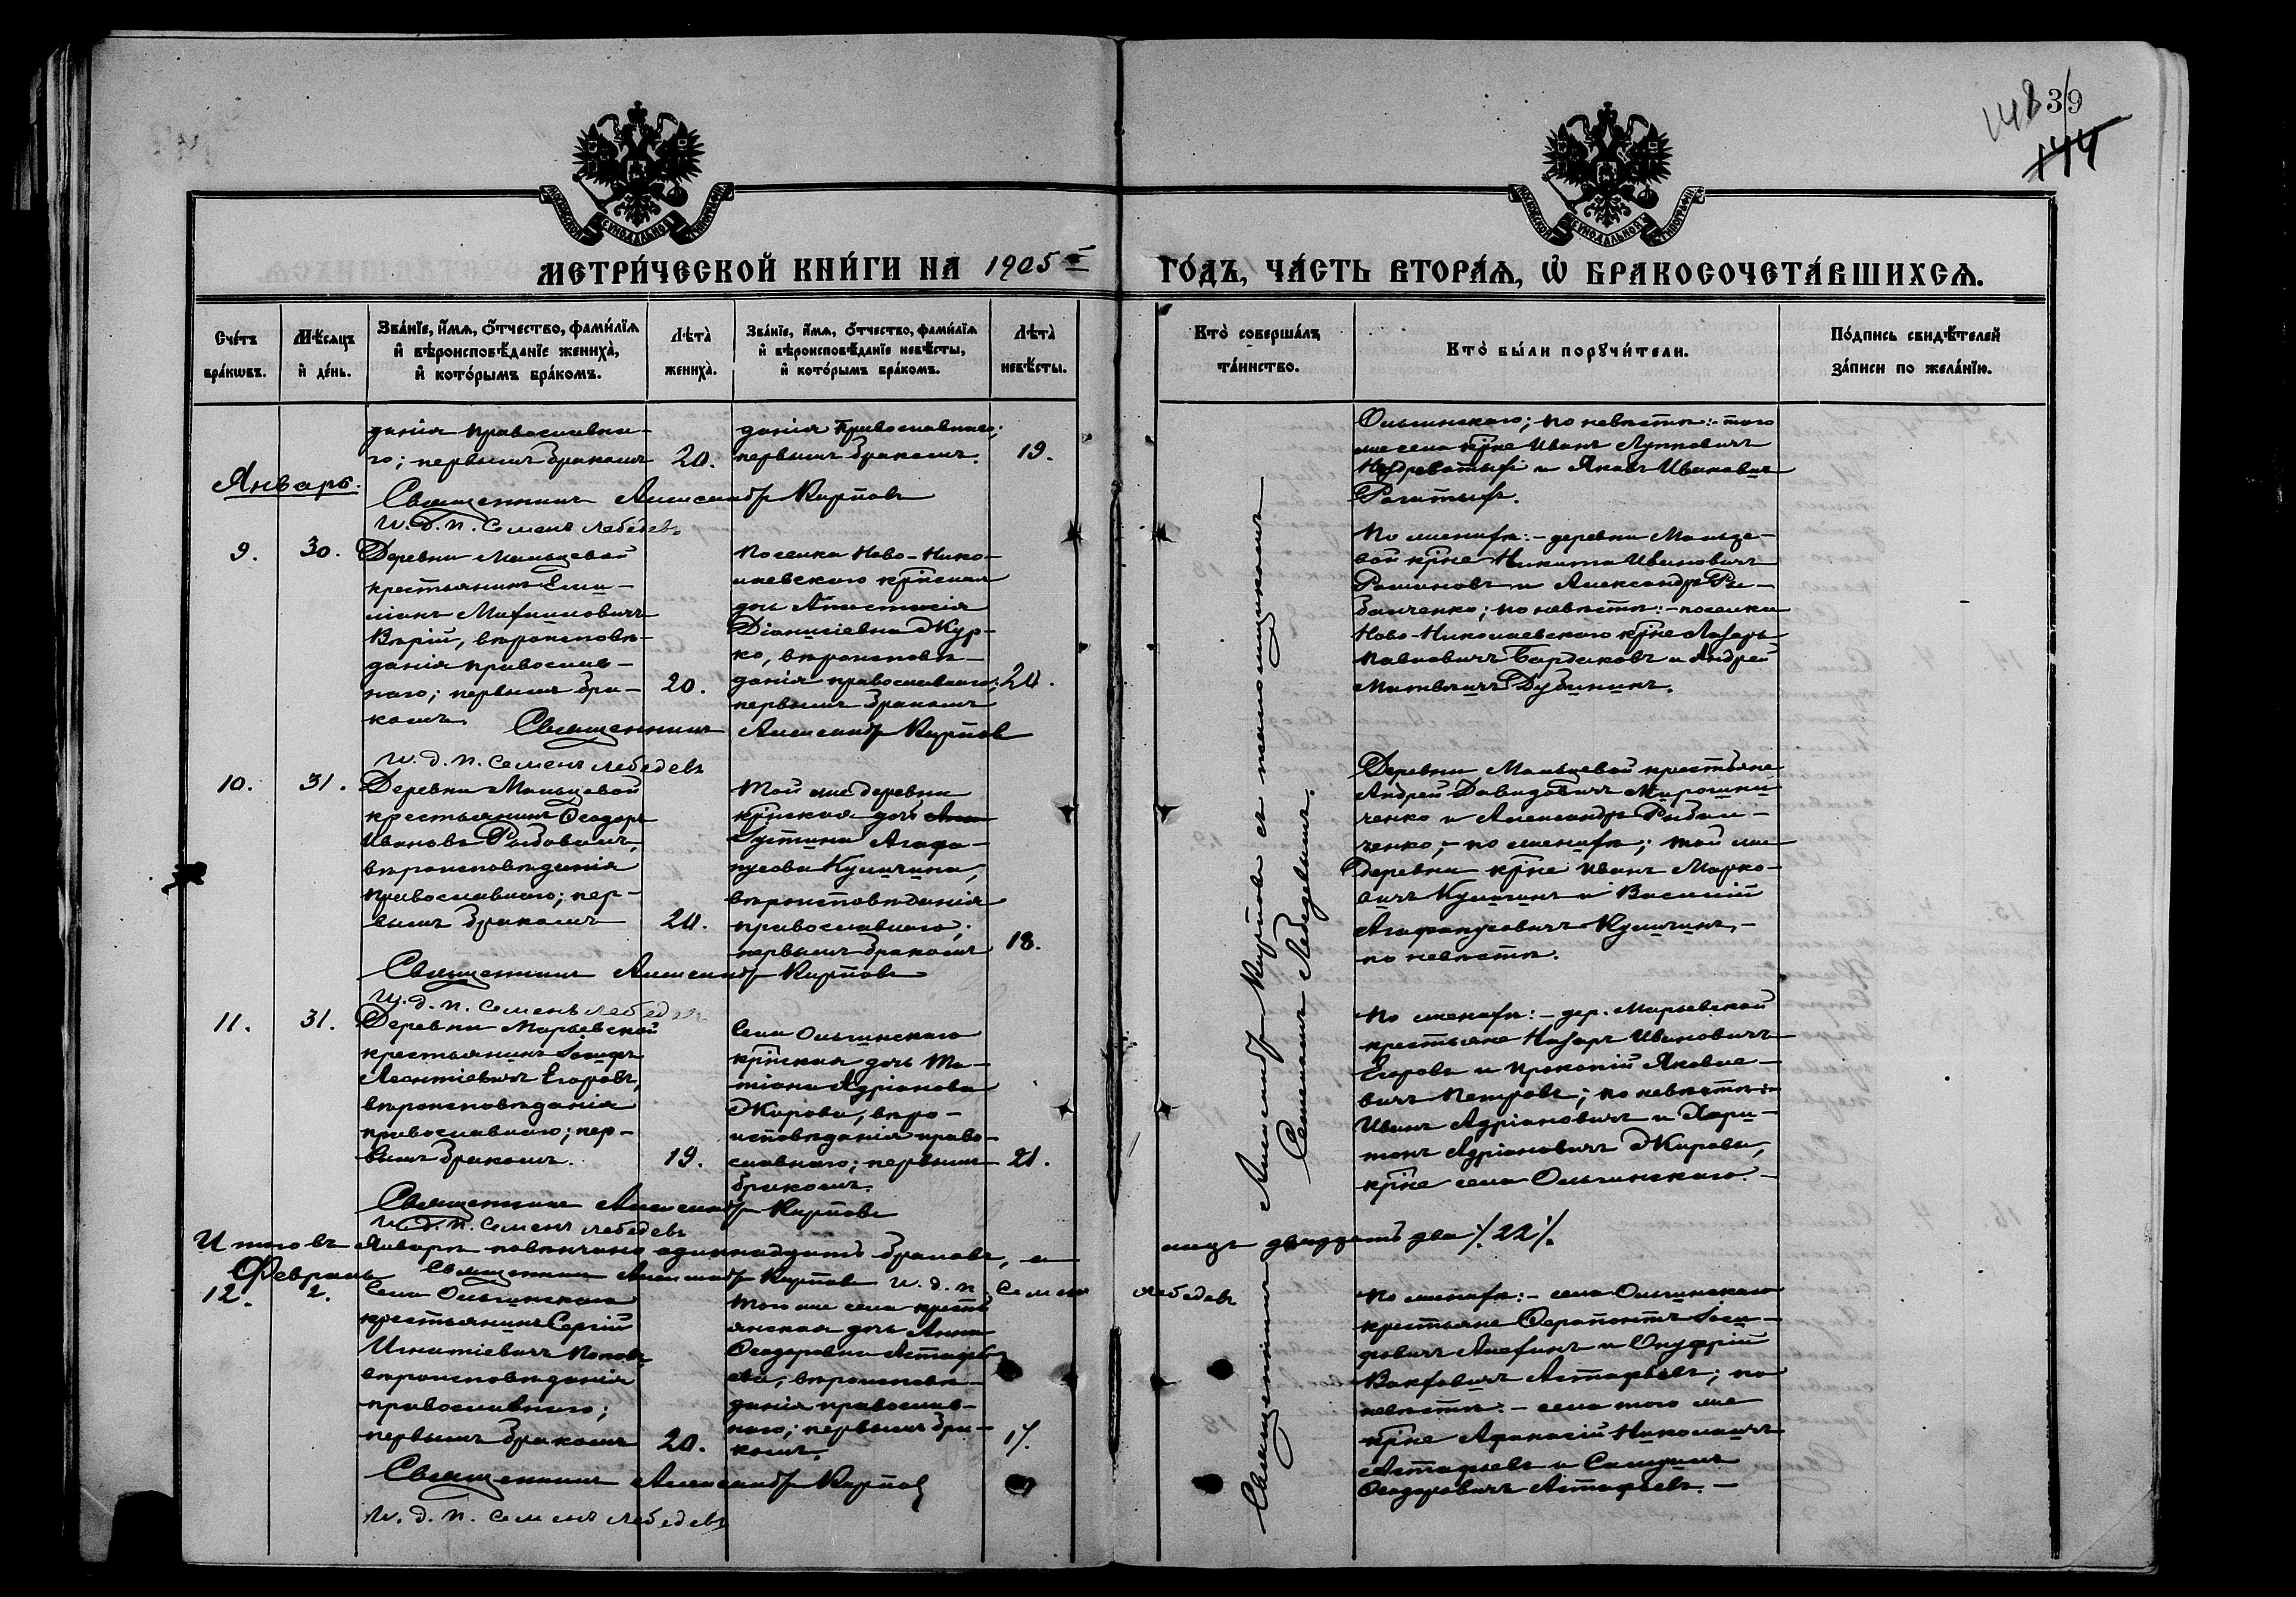 148 39
144
МОСКОВСКОЙ СѴНОДАЛЬНОЙ ТИПОГРАФІИ
МОСКОВСКОЙ СѴНОДАЛЬНОЙ ТИПОГРАФІИ
МЕТРИ́ЧЕСКОЙ КНИ́ГИ НА 1905й ГО́ДЪ, ЧА́СТЬ ВТОРА́Ѧ, Ѽ БРАКОСОЧЕТА́ВШИХСѦ.
Сче́тъ бра́кѡвъ.
Мѣ́сяцъ и҆ де́нь.
Зва́нїе, и҆́мѧ, ѻ҆́тчество, фами́лїѧ
и҆ вѣроисповѣ́данїе жениха̀,
и҆ кото́рымъ бра́комъ.
Лѣта̀ жениха̀.
Зва́нїе, и҆́мѧ, ѻ҆́тчество, фами́лїѧ
и҆ вѣроисповѣ́данїе невѣ́сты,
и҆ кото́рымъ бра́комъ.
Лѣта̀ невѣ́сты.
Кто̀ соверша́лъ та́инство.
Кто̀ бы́ли порꙋчи́тели.
По́дпись свидѣ́телей
за́писи по жела́нїю.
данія православна-
го; первымъ бракомъ
20.
данія православнаго;
первымъ бракомъ.
19.
Ольгинскаго; по невѣстѣ:- того
же села кр-не Иванъ Лупповичъ
Ноздреватый и Яковъ Ивановичъ
Рогатый.
Январь.
Священникъ Александръ Карповъ
И. д. п. Семенъ Лебедевъ
9.
30.
Деревни Мальцевой
крестьянинъ Еми-
ліанъ Михаиловичъ
Вѣрій, вѣроисповѣ-
данія православ-
наго; первымъ бра-
комъ.
20.
Поселка Ново-Нико-
лаевскаго кр-нская
дочь Анастасія
Діонисіевна Жур-
ко, вѣроисповѣ-
данія православнаго;
первымъ бракомъ
20.
По женихѣ:- деревни Мальце-
вой кр-не Никита Ивановичъ
Романовъ и Александръ Ры-
бальченко; по невѣстѣ:- поселка
Ново-Николаевскаго кр-не Лазарь
Павловичъ Бардаковъ и Андрей
Матвѣичъ Дубининъ.
Священникъ Александръ Карповъ
И. д. п. Семенъ Лебедевъ
10.
31.
Деревни Мальцевой
крестьянинъ Ѳеодоръ
Ивановъ
вѣроисповѣданія
православнаго; пер-
вымъ бракомъ
20.
Той же деревни
кр-нская дочь
Іустина Агафа-
нгелова Куличина,
вѣроисповѣданія
православнаго;
первымъ бракомъ
18.
Деревни Мальцевой крестьяне
Андрей Давидовичъ Мирошни-
ченко и Александръ Рыбаль-
ченко;- по женихѣ; той же
деревни кр-не Иванъ Марко-
вичъ Куличинъ и Василій
Агафангеловичъ Куличинъ,-
по невѣстѣ.
Священникъ Александръ Карповъ
И. д. п. Семенъ Лебедевъ
11.
31.
Деревни Марьевской
крестьянинъ Іосифъ
Леонтіевичъ Егоровъ,
вѣроисповѣданія
православнаго; пер-
вымъ бракомъ.
19.
Села Ольгинскаго
кр-нская дочь Та-
тіана Адріанова
Жирова, вѣро-
исповѣданія право-
славнаго; первымъ
бракомъ.
21.
По женихѣ:- дер. Марьевской
крестьяне Назаръ Ивановичъ
Егоровъ и Прокопій Яковле-
вичъ Петровъ; по невѣстѣ:-
Иванъ Адріановичъ и Хари-
тонъ Адріановичъ Жировы,
кр-не села Ольгинскаго.-
Священникъ Александръ Карповъ
И. д. п. Семенъ Лебедевъ
Итого въ Январѣ повѣнчано одиннадцать браковъ, а лицъ двадцать два /.22/.
Священникъ Александръ Карповъ И. д. п. Семенъ Лебедевъ
Февраль
12.
2.
Села Ольгинскаго
крестьянинъ Сергій
Игнатіевичъ Поповъ,
вѣроисповѣданія
православнаго;
первымъ бракомъ
20.
Того же села кресть-
янская дочь Анна
Ѳеодоровна Астафье-
ва, вѣроисповѣ-
данія православ-
наго; первымъ бра-
комъ.
17.
По женихѣ:- села Ольгинскаго
крестьяне Ѳерапонтъ Іоси-
фовичъ Алехинъ и Онуфрій
Астафьевъ; по
невѣстѣ:- села того же
кр-не Афанасій Николаичъ
Астафьевъ и Самуилъ
Ѳеодоровичъ Астафьевъ.-
Священникъ Александръ Карповъ
И. д. п. Семенъ Лебедевъ
Священникъ Александръ Карповъ съ псаломщикомъ
Семеномъ Лебедевымъ.